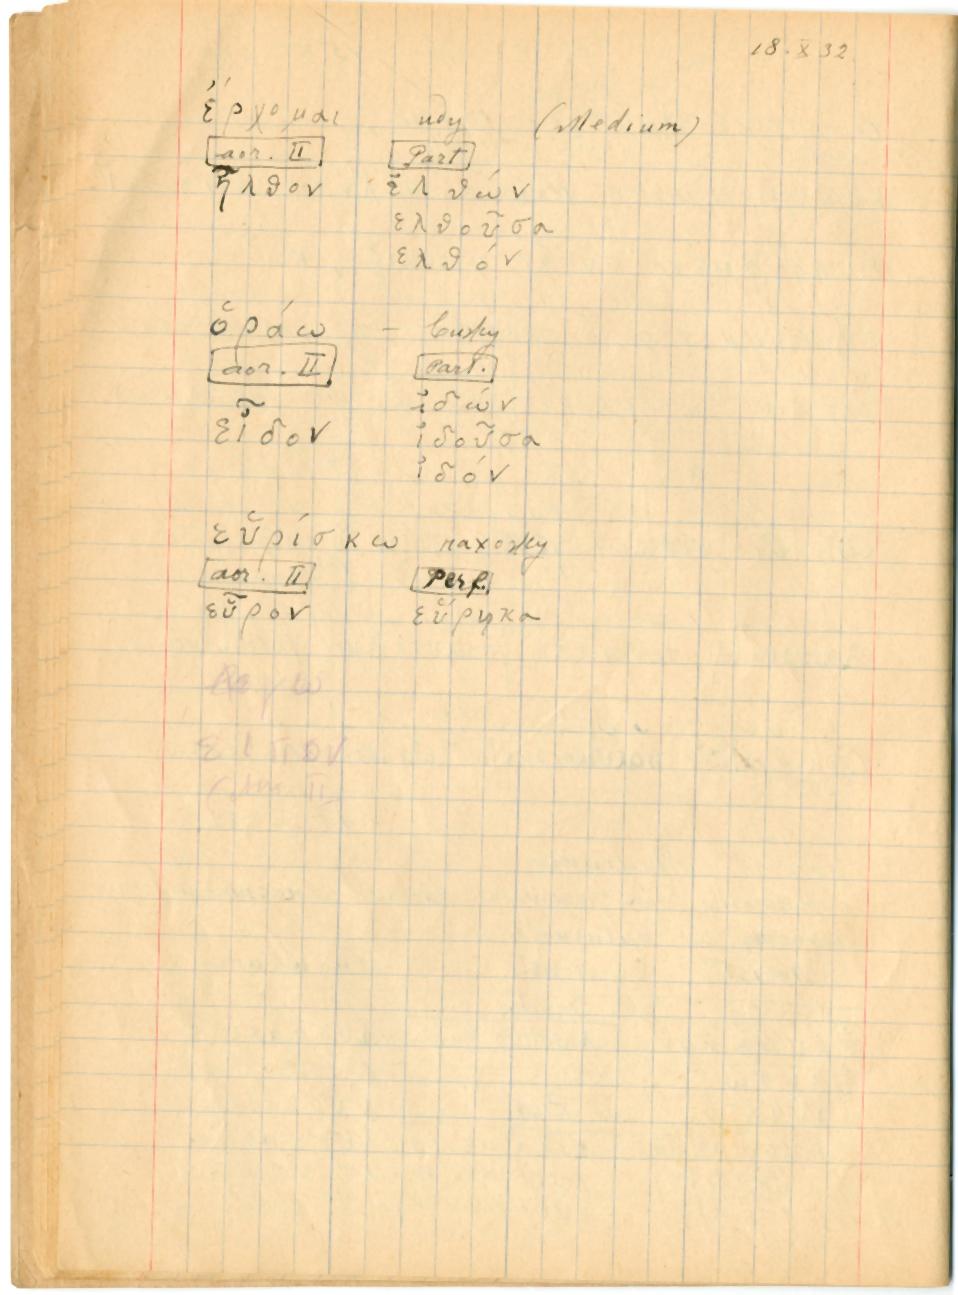 18.X 32
ἔρχομαι иду (Medium)
aor. II Part
ἦλθον ἐλθών
ελθοῦσα
ελθόν
ὁράω – вижу
aor. II Part.
ἰδών
εἶδον ἰδοῦσα
ἰδόν
εὑρίσκω нахожу
aor. II Perf.
εὗρον εὕρηκα
λεγω
ειπον